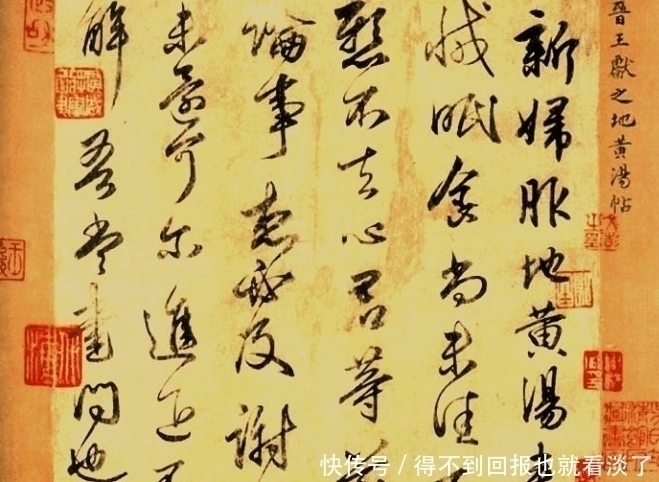 晉王獻之地黃湯帖
新婦服地黃湯
減眠食尚未佳
懸不去心君等
論事想必及謝
未還可爾進退
解吾當書問也
快传号 / 得不到回报也就看淡了